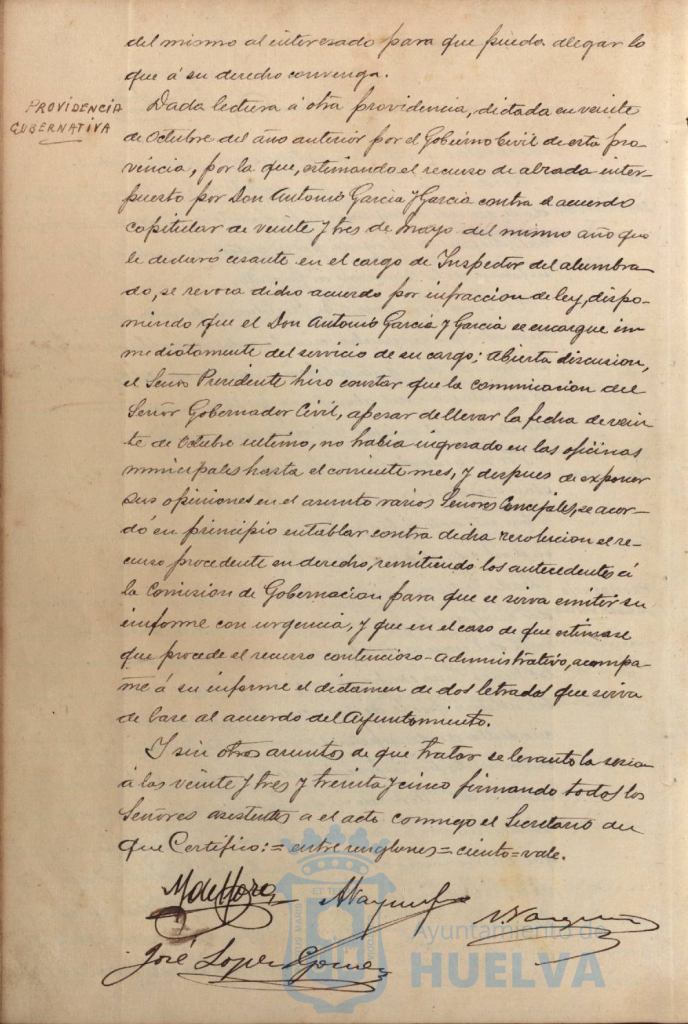 del mismo al interesado para que pueda alegar lo
que á su derecho convenga.
PROVIDENCIA
GUBERNATIVA
Dada lectura á otra providencia, dictada en veinte
de Octubre del año anterior por el Gobierno Civil de esta pro-
vincia, por la que, estimando el recurso de alzada inter-
puesto por Don Antonio Garcia y Garcia contra el acuerdo
capitular de veinte y tres de Mayo del mismo año que
le declaró cesante en el cargo de Inspector del alumbra
do, se revoca dicho acuerdo por infraccion de ley, dispo-
niendo que el Don Antonio Garcia y Garcia se encargue in
mediatamente del servicio de su cargo; abierta discusion,
el Señor Presidente hizo constar que la comunicacion del
Señor Gobernador Civil, apesar de llevar la fecha de vein
te de Octubre ultimo, no habia ingresado en las oficinas
municipales hasta el corriente mes, y despues de exponer
sus opiniones en el asunto varios Señores Concejales, se acor-
dó en principio entablar contra dicha resolucion el re-
curso procedente en derecho, remitiendo los antecedentes á
la Comision de Gobernacion para que se sirva emitir su
informe con urgencia, y que en el caso de que estimase
que procede el recurso contencioso-administrativo, acompa-
ñe á su informe el dictamen de dos letrados que sirva
de base al acuerdo del Ayuntamiento.
Y sin otros asuntos de que tratar se levantó la sesion
á las veinte y tres y treinta y cinco firmando todos los
Señores asistentes a el acto conmigo el Secretario de
que Certifico:= entre renglones = ciento = vale.
José Lopez Gomez
Ayuntamiento de
HUELVA